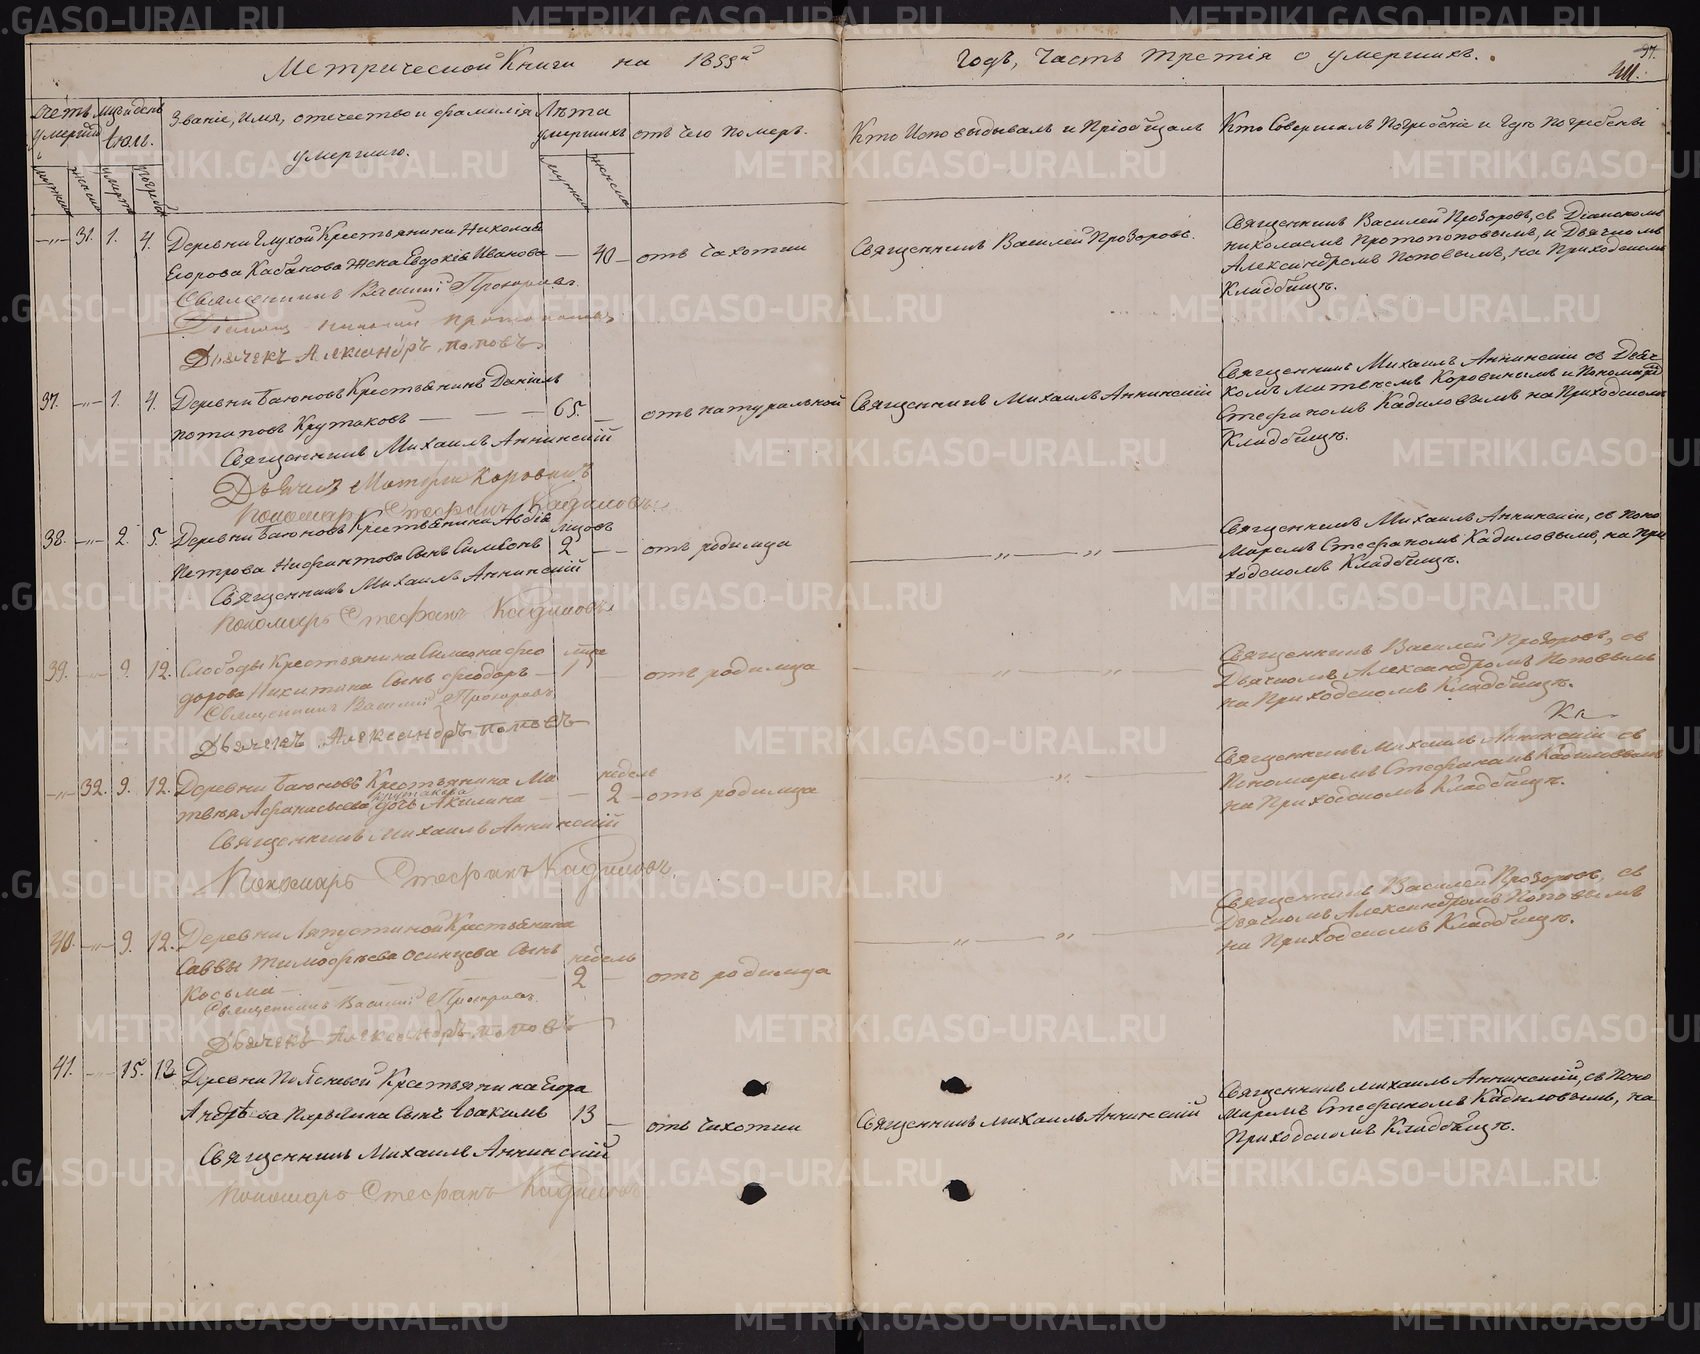 Метрической Книги на 1855й
Годъ, Часть третія о умершихъ.
97.
Счетъ умершихъ
Мѣсяцъ и день
Іюль.
Званіе, имя, отечество и фамилія умершаго.
Лѣта умершихъ
отъ чего померъ.
Кто Исповѣдывалъ и Пріобщалъ
Кто Совершалъ Погребеніе и Гдѣ Погребены
мужеска
женска
умерт
погреб
мужеска
женска
—„— 31. 1. 4. Деревни Глухой Крестьянина Николая
Егорова Кабакова Жена Евдокія Иванова — 40 — отъ Чахотки
Священникъ Василій Прозоровъ.
Священникъ Василей Прозоровъ, съ Діакономъ
Николаемъ Протопоповымъ, и Дьячкомъ
Александромъ Поповымъ, на Приходскомъ
Кладбищѣ.
Священникъ Василій Прозоровъ.
Діаконъ Николай Протопоповъ
Дьячекъ Александръ Поповъ.
37. —„— 1. 4. Деревни Баюновъ Крестьянинъ Даніилъ
Потаповъ Крутаковъ — 65. — отъ натуральной
Священникъ Михаилъ Аннинскій
Священникъ Михаилъ Аннинскій съ Дьяч
комъ Матвѣемъ Коровинымъ и Пономаремъ
Стефаномъ Кадиловымъ на Приходскомъ
Кладбищѣ.
Священникъ Михаилъ Аннинскій
Дьячекъ Матфей Коровинъ
Пономарь Стефанъ Кадиловъ.
38. —„— 2. 5. Деревни Баюновъ Крестьянина Авдѣя
Петрова Нифантова Сынъ Симеонъ 2 — отъ родимца
—„— —„—
Священникъ Михаилъ Аннинскій, съ Поно
маремъ Стефаномъ Кадиловымъ, на При
ходскомъ Кладбищѣ.
Священникъ Михаилъ Аннинскій
Пономарь Стефанъ Кадиловъ.
39. —„— 9. 12. Слободы Крестьянина Силы Ѳео
дорова Никитина Сынъ Ѳеодоръ — 1 — отъ родимца
—„— —„—
Священникъ Василей Прозоровъ, съ
Дьячкомъ Александромъ Поповымъ
на Приходскомъ Кладбищѣ.
Священникъ Василій Прозоровъ
Дьячекъ Александръ Поповъ
—„— 32. 9. 12. Деревни Баюновъ Крестьянина Ма
твѣя Афанасьева Крутакова дочь Акилина — недель 2 — отъ родимца
—„—
Священникъ Михаилъ Аннинскій съ
Пономаремъ Стефаномъ Кадиловымъ
на Приходскомъ Кладбищѣ.
Священникъ Михаилъ Аннинскій
Пономарь Стефанъ Кадиловъ.
40. —„— 9. 12. Деревни Лапустиной Крестьянина
Саввы Тимофѣева Осинцева Сынъ
Косьма — недель 2 — отъ родимца
—„— —„—
Священникъ Василей Прозоровъ, съ
Дьячкомъ Александромъ Поповымъ
на Приходскомъ Кладбищѣ.
Священникъ Василій Прозоровъ.
Дьячекъ Александръ Поповъ
41. —„— 15. 18 Деревни Крестьянина Егора
Андрѣева Паршина Сынъ Іоакимъ 13 — отъ Чахотки
Священникъ Михаилъ Аннинскій
Священникъ Михаилъ Аннинскій, съ Поно
маремъ Стефаномъ Кадиловымъ, на
Приходскомъ Кладбищѣ.
Священникъ Михаилъ Аннинскій
Пономарь Стефанъ Кадиловъ
METRIKI.GASO-URAL.RU